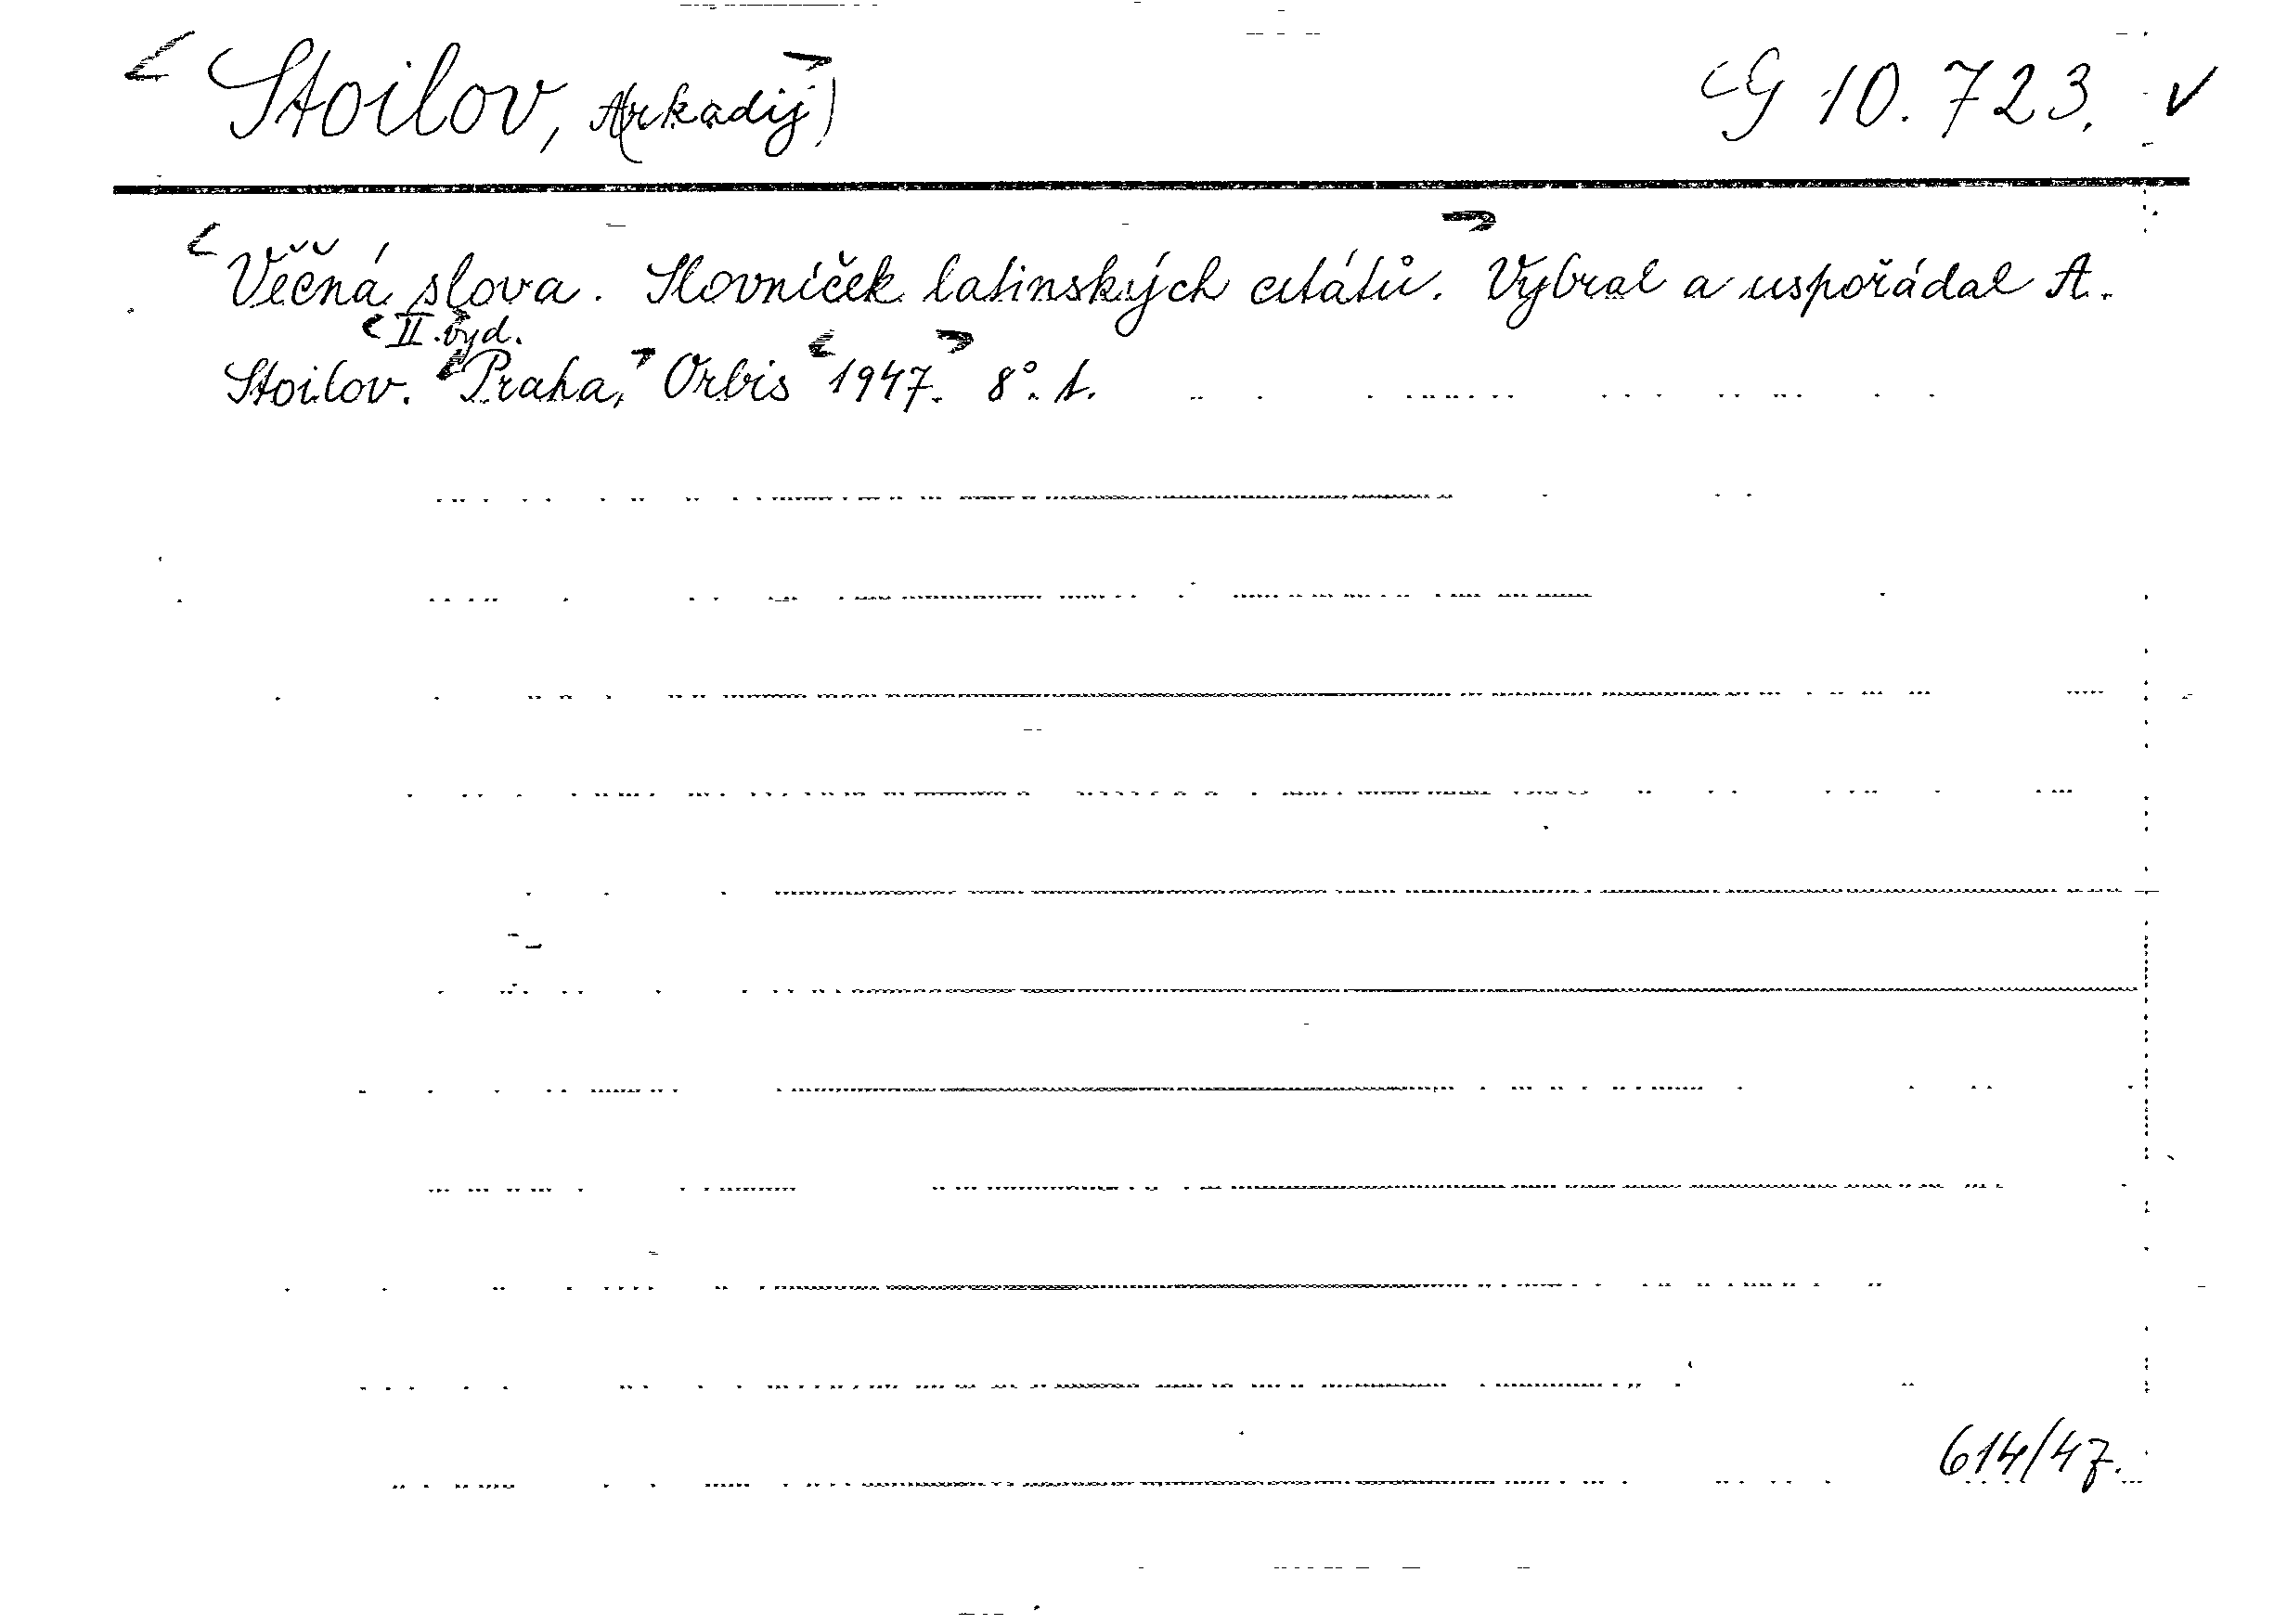 Stoilov, (Arkadij) G 10.723.
Věčná slova. Slovníček latinských citátů. Vybral a uspořádal A.
II. vyd.
Stoilov. Praha, Orbis 1947. 8°. t.
614/47.